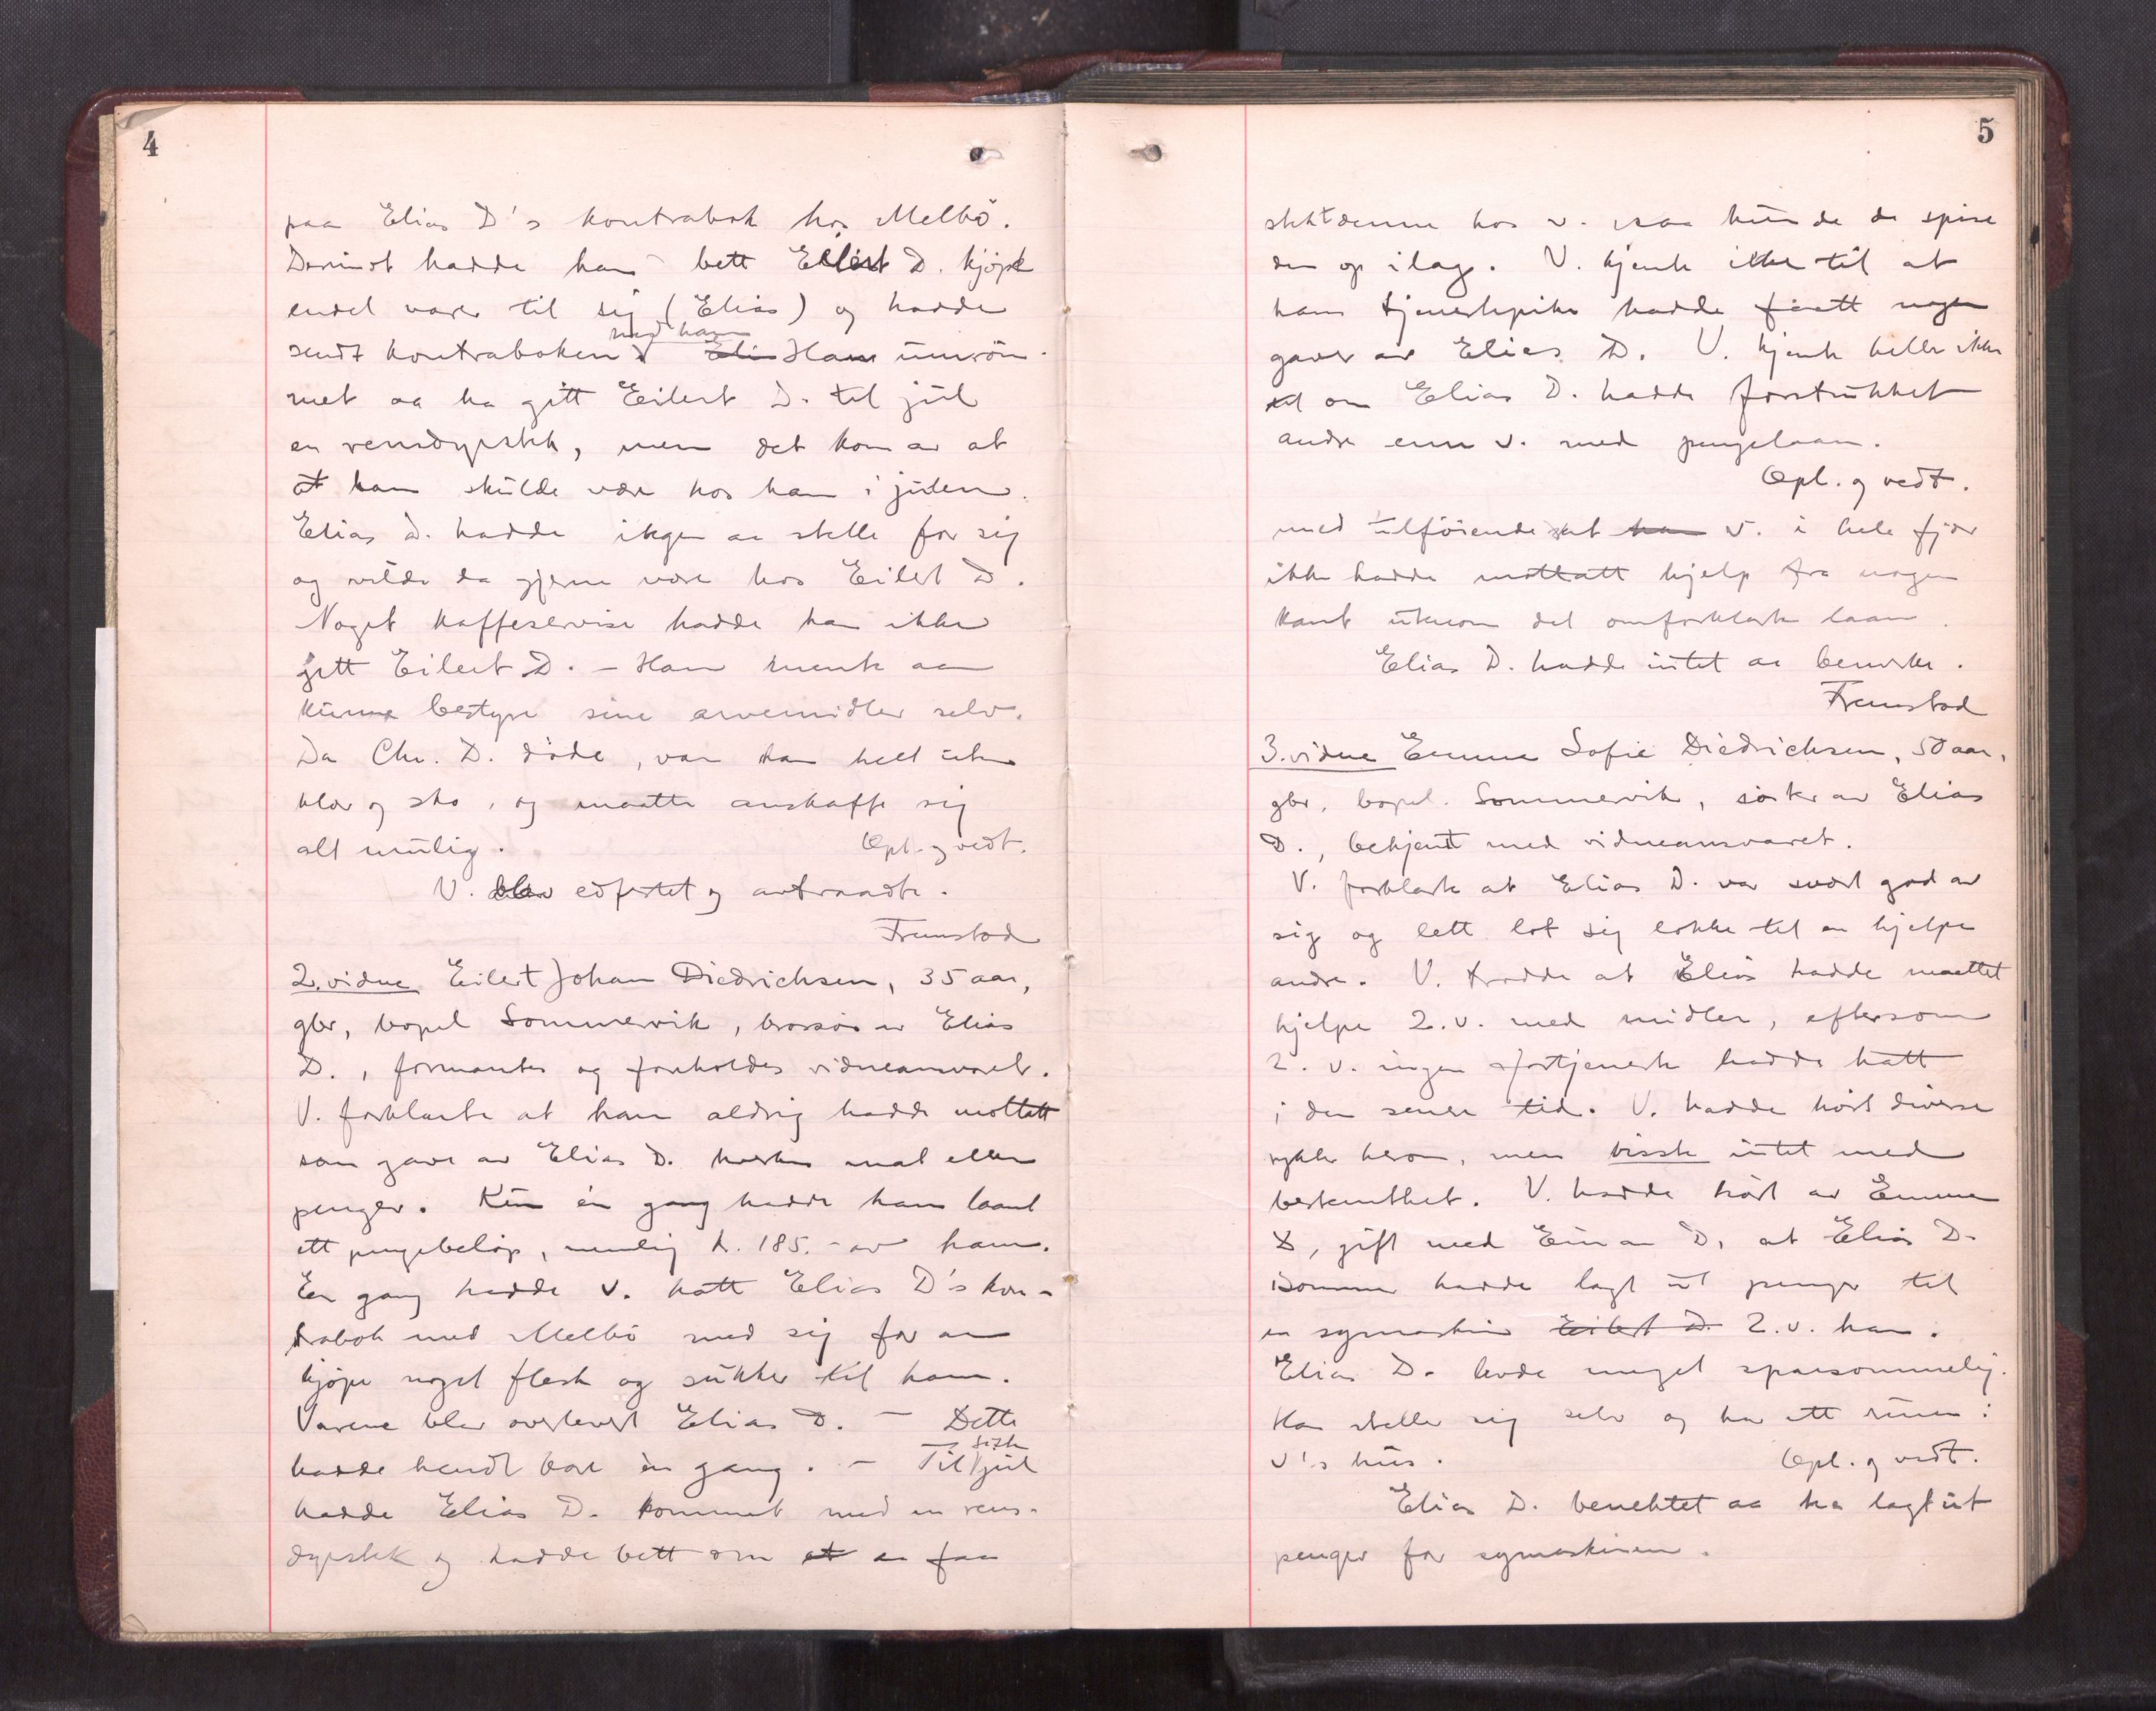 4
paa Elias D's kontrabok hos Melbö.
Derimot hadde han bett Eilert D. kjöpe
endel varer til sig (Elias) og hadde
med ham
sendt kontraboken. Eli Han innröm-
met aa ha gitt Eilert D. til jul
en rensdyrstek, men det kom av at
at han skulde være hos ham i julen.
Elias D. hadde ingen aa stelle for sig
og vilde da gjerne være hos Eilert D.
Noget kaffeservise hadde han ikke
gitt Eilert D. - Han mente aa
kunne bestyre sine arvemidler selv.
Da Chr. D. döde, var han helt uten
klær og sko, og maatte anskaffe sig
alt mulig. Opl. og vedt.
V. blev edfestet og avtraadte.
Fremstod
2. vidne Eilert Johan Diedrichsen, 35 aar,
gbr, bopel Sommervik, brorsön av Elias
D., formantes og foreholdes vidneansvaret.
V. forklarte at han aldrig hadde mottatt
som gave av Elias D. hverken mat eller
penger. Kun én gang hadde han laant
ett pengebelöp, nemlig k. 185.- av ham.
En gang hadde v. hatt Elias D's kon-
trabok med Melbö med sig for aa
kjöpe noget flesk og sukker til ham.
Varene blev overlevert Elias D. - Dette
hadde hendt bare én gang. - Til jul
siste
hadde Elias D. kommet med en rens-
dyrstek og hadde bett om at aa faa
5
stekt denne hos v. saa kunde de spise
den op ilag. V. kjente ikke til at
hans tjenestepike hadde faatt nogen
gaver av Elias D. V. kjente heller ikke
til om Elias D. hadde forstrukket
andre enn v. med pengelaan.
Opl. og vedt.
med tilföiende at han v. i hele fjor
ikke hadde mottatt hjelp fra nogen
kant utenom det omforklarte laan.
Elias D. hadde intet aa bemerke.
Fremstod
3. vidne Emma Sofie Diedrichsen, 50 aar,
gbr, bopel Sommervik, söster av Elias
D., bekjent med vidneansvaret.
V. forklarte at Elias D. var svært god av
sig og lett lot sig lokke til aa hjelpe
andre. V. trodde at Elias hadde maattet
hjelpe 2. v. med midler, eftersom
2. v. ingen fortjeneste hadde hatt
i den senere tid. V. hadde hört diverse
rykter herom, men visste intet med
bestemthet. V. hadde hört av Emma
D, gift med Einar D, at Elias D.
hadde lagt ut penger til
en symaskin Eilert D. 2. v. har.
Elias D. levde meget sparsommelig.
Han steller sig selv og har ett rum i
v's hus. Opl. og vedt.
Elias D. benektet aa ha lagt ut
penger for symaskinen.